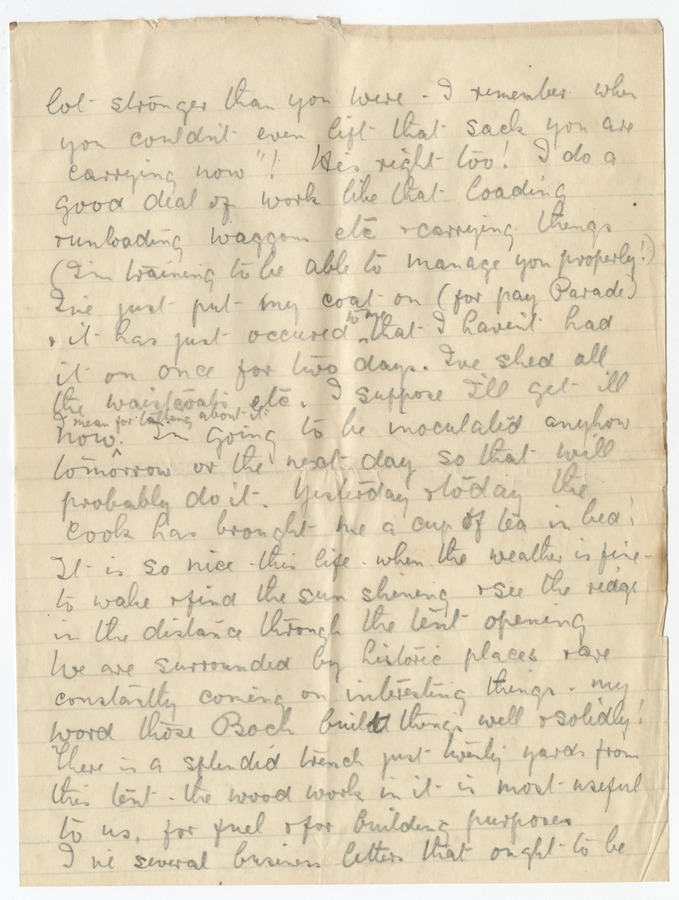 lot stronger than you were - I remember when
you couldn't even lift that sack you are
carrying now"! He's right too! I do a
good deal of work like that loading
& unloading waggons etc & carrying things
(I'm training to be able to manage you properly!)
I've just put my coat on (for pay Parade)
& it has just occured to me that I haven't had
it on once for two days. I've shed all
the waistcoats etc. I suppose I'll get ill
I mean for talking about it
now. I'm going to be inoculated anyhow
tomorrow or the next day so that will
probably do it. Yesterday & today the
cook has brought me a cup of tea in bed!
It is so nice - this life - when the weather is fine -
to wake & find the sun shining & see the ridge
in the distance through the tent opening
We are surrounded by historic places & are
constantly coming on interesting things. my
word those Boch built things well & solidly!
There is a splendid trench just twenty yards from
this tent - the wood work in it is most useful
to us, for fuel & for building purposes
I've several business letters that ought to be